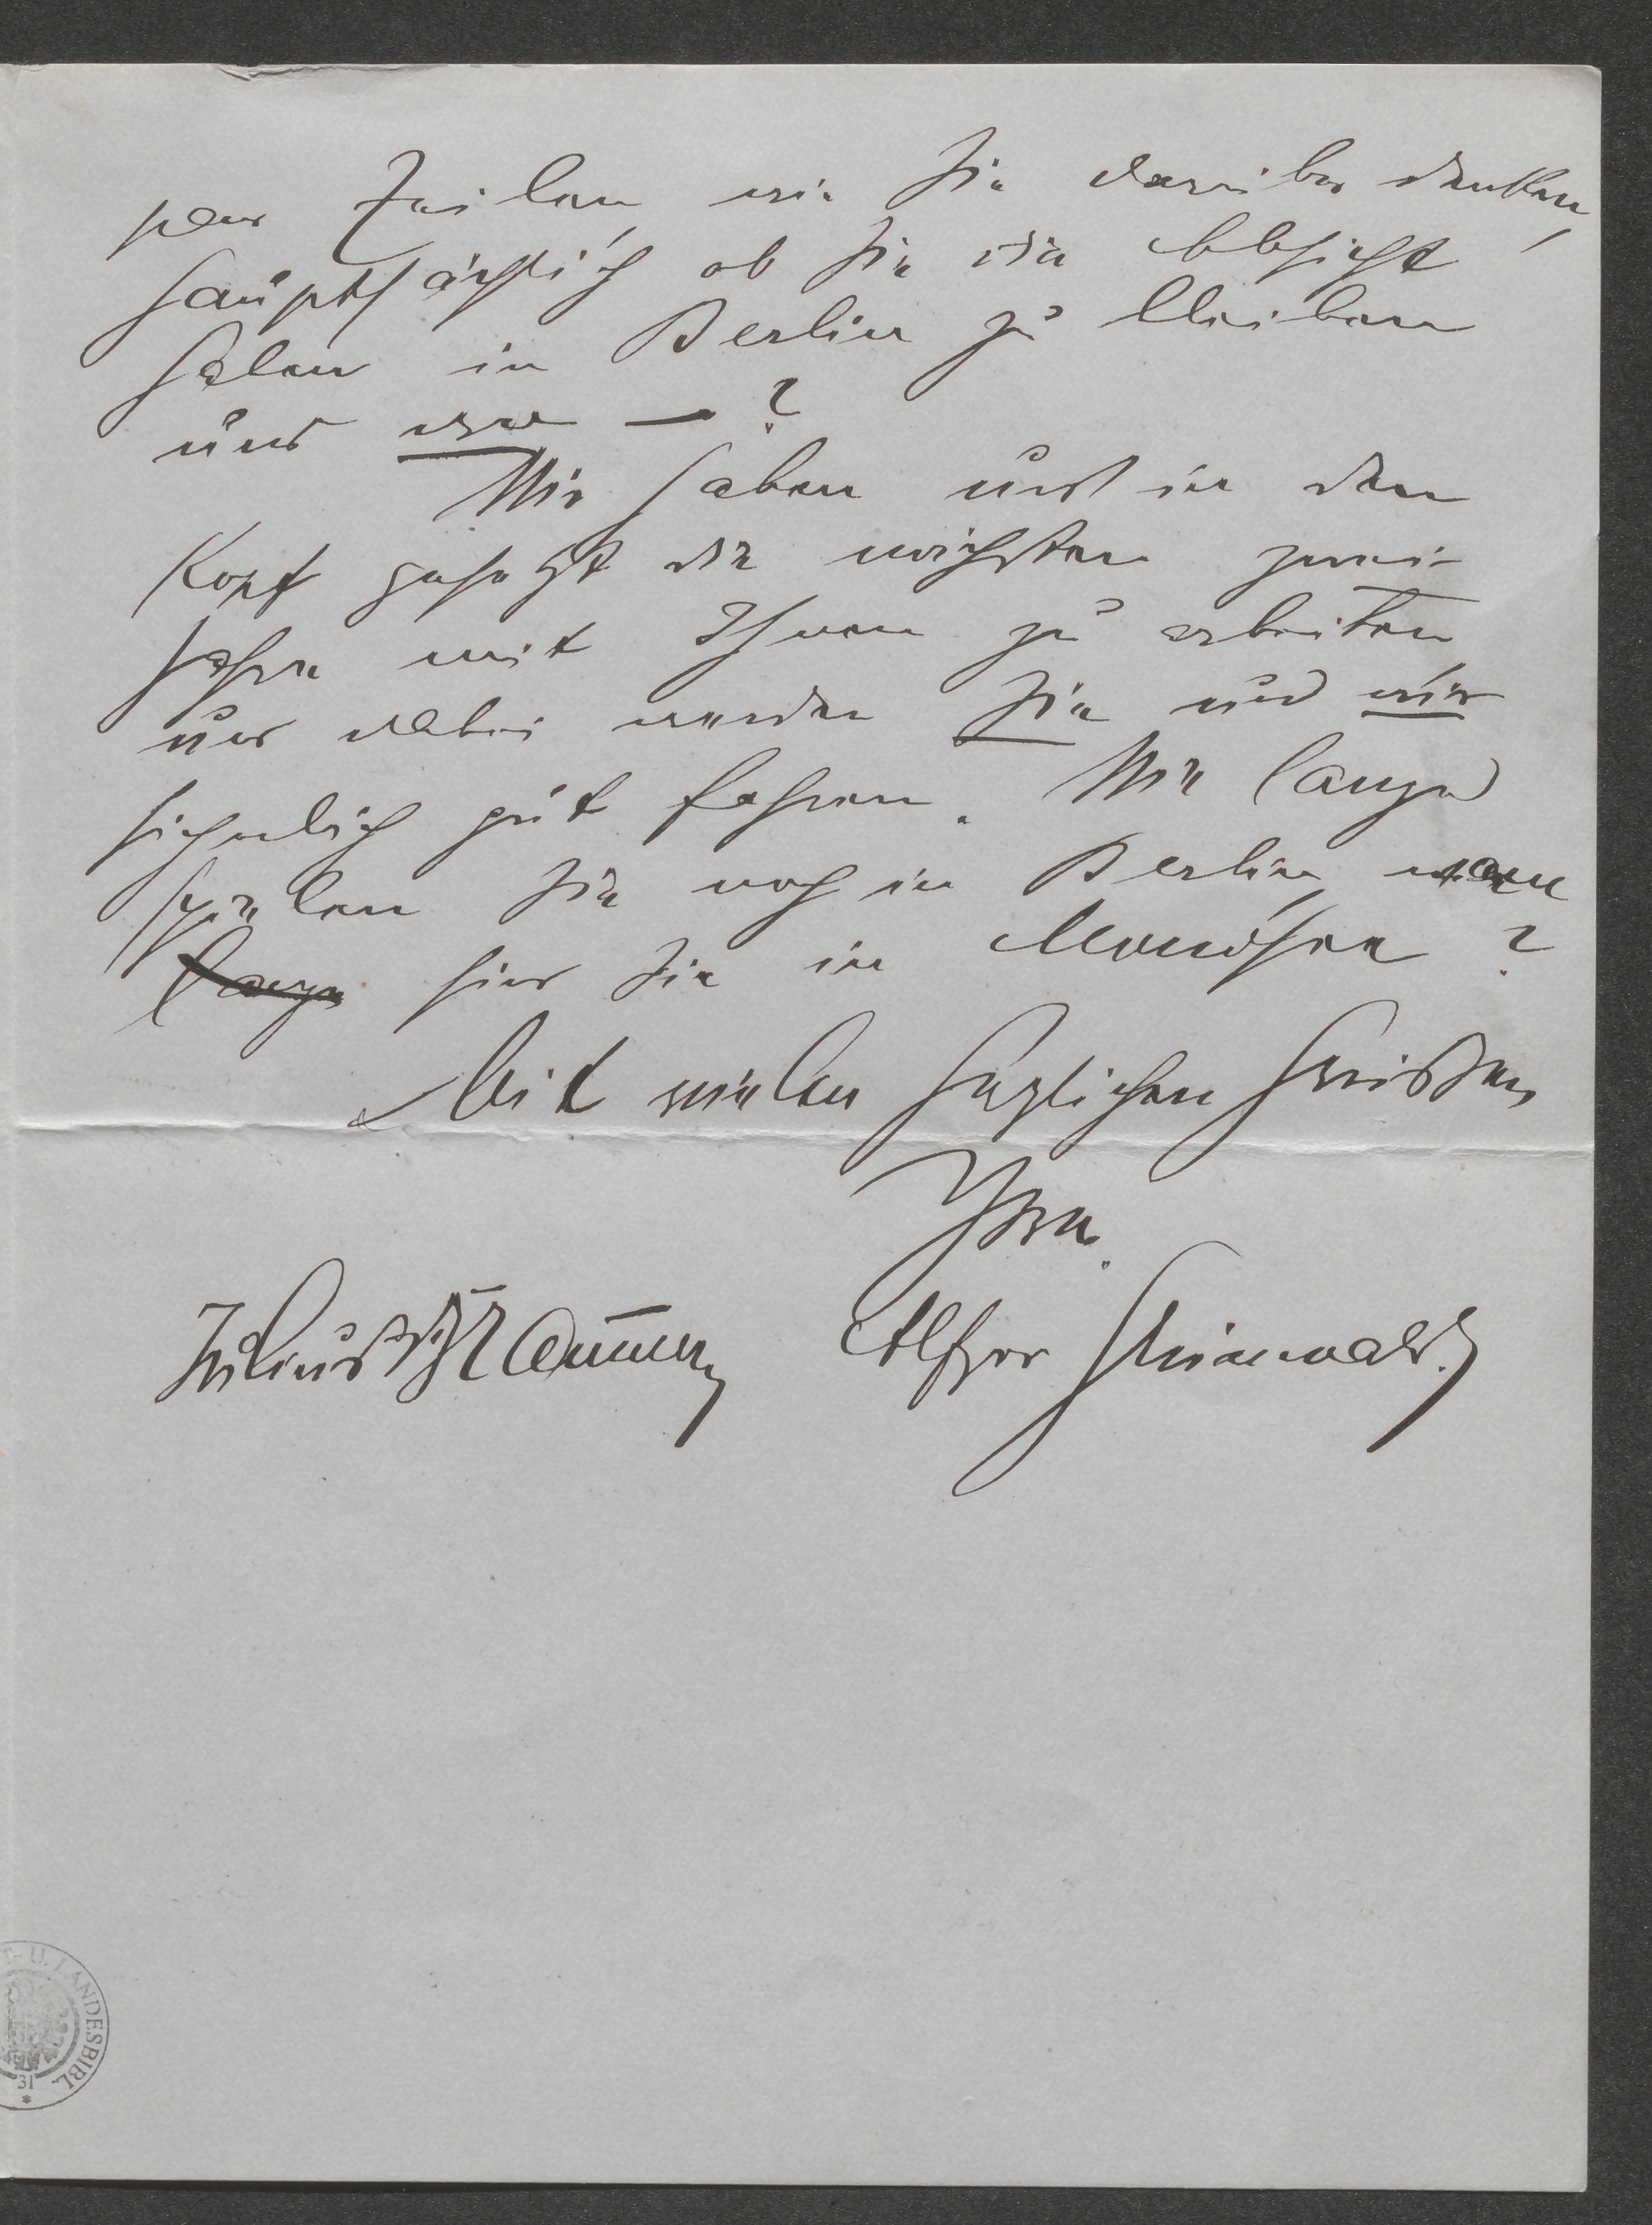 paar Zeilen wie Sie darüber denken,
hauptsächlich ob Sie die Absicht
haben in Berlin zu bleiben
und wo — ?
Wir haben uns in den
Kopf gesetzt die nächsten zwei
Jahre mit Ihnen zu arbeiten
und dabei werden Sie und wir
sicherlich gut fahren. Wie lange
spielen Sie noch in Berlin, wann
lange sind Sie in München ?
Mit vielen herzlichen Grüßen
Ihre
Julius Brammer Alfred Grünwald.
U. LANDESBIBL.
31